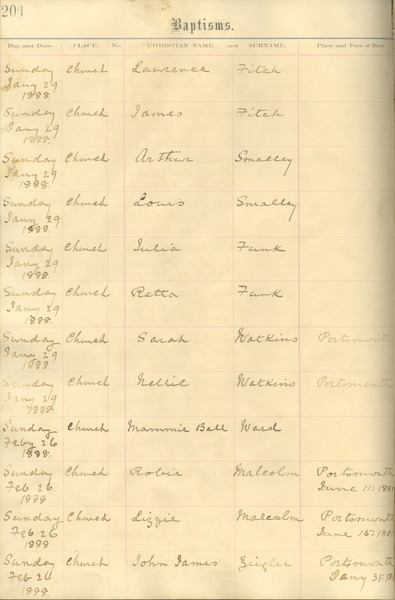 204
Baptisms.
Day and Date. PLACE. No. CHRISTIAN NAME and SURNAME. Place and Date of Birth.
Sunday Church Lawrence Fitch
Jany 29
1888.
Sunday Church James Fitch
Jany 29
1888.
Sunday Church Arthur Smalley
Jany 29
1888.
Sunday Church Louis Smalley
Jany 29
1888.
Sunday Church Julia Funk
Jany 29
1888.
Sunday Church Retta Funk
Jany 29
1888.
Sunday Church Sarah Watkins Portsmouth
Jany 29
1888.
Sunday Church Nellie Watkins Portsmouth
Jany 29
1888.
Sunday Church Mammie Bell Ward
Feby 26
1888.
Sunday Church Robie Malcolm Portsmouth
Feb 26. June 11:
1888
Sunday Church Lizzie Malcolm Portsmouth
Feb 26 June 15:
1888
Sunday Church John James Zeigler Portsmouth
Feb 26 Jany 31:
1888